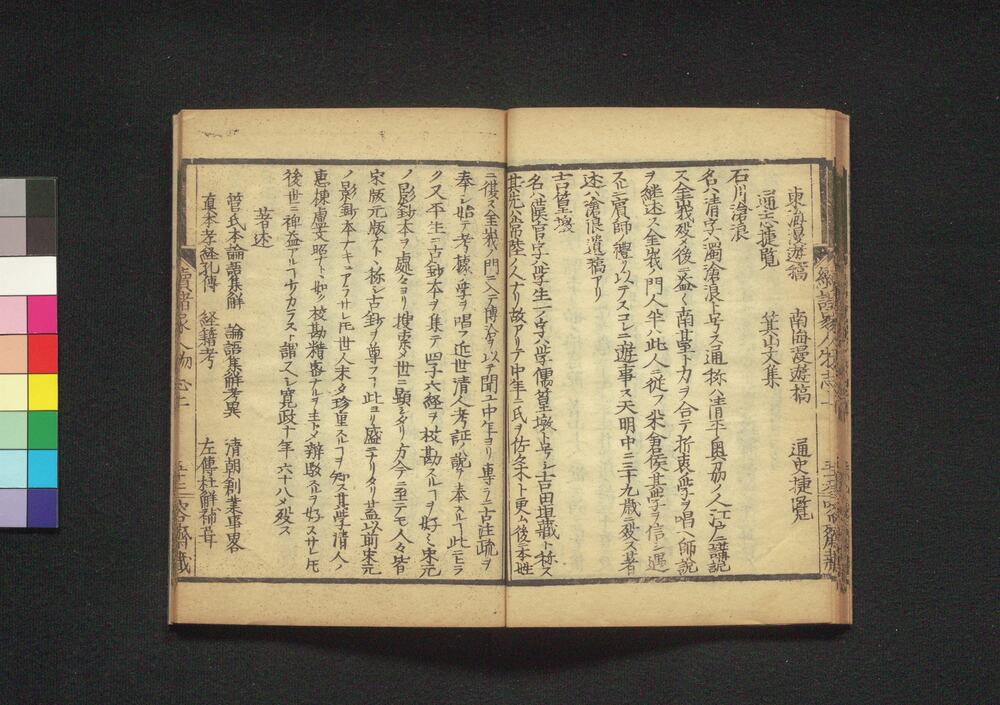 東海漫遊稿　南海漫遊稿　通史捷覧
通志捷覧　箕山文集
石川滄浪
名ハ清字ハ濁滄浪ト号ス通称ハ清平奥刕ノ人江戸ニ講説
ス金峩殁メ後ニ益〻南基ト力ヲ合テ折衷ノ学ヲ唱ヘ師説
ヲ継述ス金峩ノ門人半ハ此人ニ従フ米倉侯其学ヲ信シ遇
スルニ賓師ノ禮ヲ以テスコレニ遊事ス天明中ニ三十九歳ニ殁ス著
述ハ滄浪遺稿アリ
吉田篁墩
名ハ漢官字ハ学生一ノ字ハ学儒篁墩ト号シ吉田坦藏ト称ス
其先ハ常陸ノ人ナリ故アリテ中年ニ氏ヲ佐々木ト更ム後ニ本姓
ニ復ス金峩ノ門ニ入テ博洽ヲ以テ聞ユ中年ヨリ專ラニ古注疏ヲ
奉シ始テ考據ノ学ヲ唱フ近世清人考証ノ説ヲ奉スルヿ此ニヒラ
ク又平生ニ古鈔本ヲ集テ四子六経ヲ校勘スルヿヲ好ミ宋元
ノ影鈔本ヲ處々ヨリ捜索メ世ニ顕シタリ方今ニ至テモ人々皆
宋版元版ナト丶称シ古鈔ヲ尊フヿ此ヨリ盛ニナリタリ蓋以前宋元
ノ影鈔本ナキニアラサレ𪜈世人未タ珍重スルヿヲ知ス其学清人ノ
惠棟盧文弨ナトノ如ク校勘精密ナルヲ主トメ辨駁スルヲ好ス
後世ニ裨益アルヿ少カラスト謂ヘシ寛政十年六十八ニメ殁ス
著述
菅氏本論語集解　論語集解考異　清朝創業事畧
真本孝経孔傳　経籍考　左傳杜解補葺
續諸家人物志上
續諸家人物志上